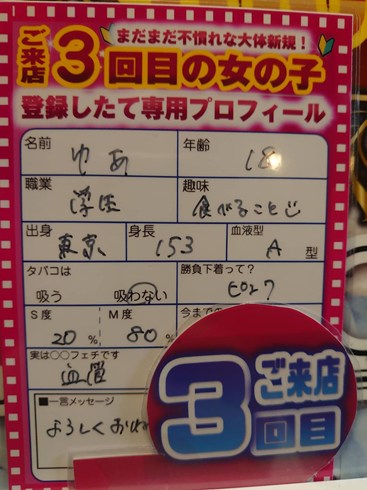 まだまだ不慣れな大体新規！
ご来店3回目の女の子
登録したて専用プロフィール
名前 ゆあ 年齢 18
職業 学生 趣味 食べること
出身 東京 身長 153 血液型 A 型
タバコは 吸う 吸わない 勝負下着って？ ピンク
S度 20 % M度 80 % 今までの
実は○○フェチです
血管
■一言メッセージ
よろしくおね
3ご来店回目